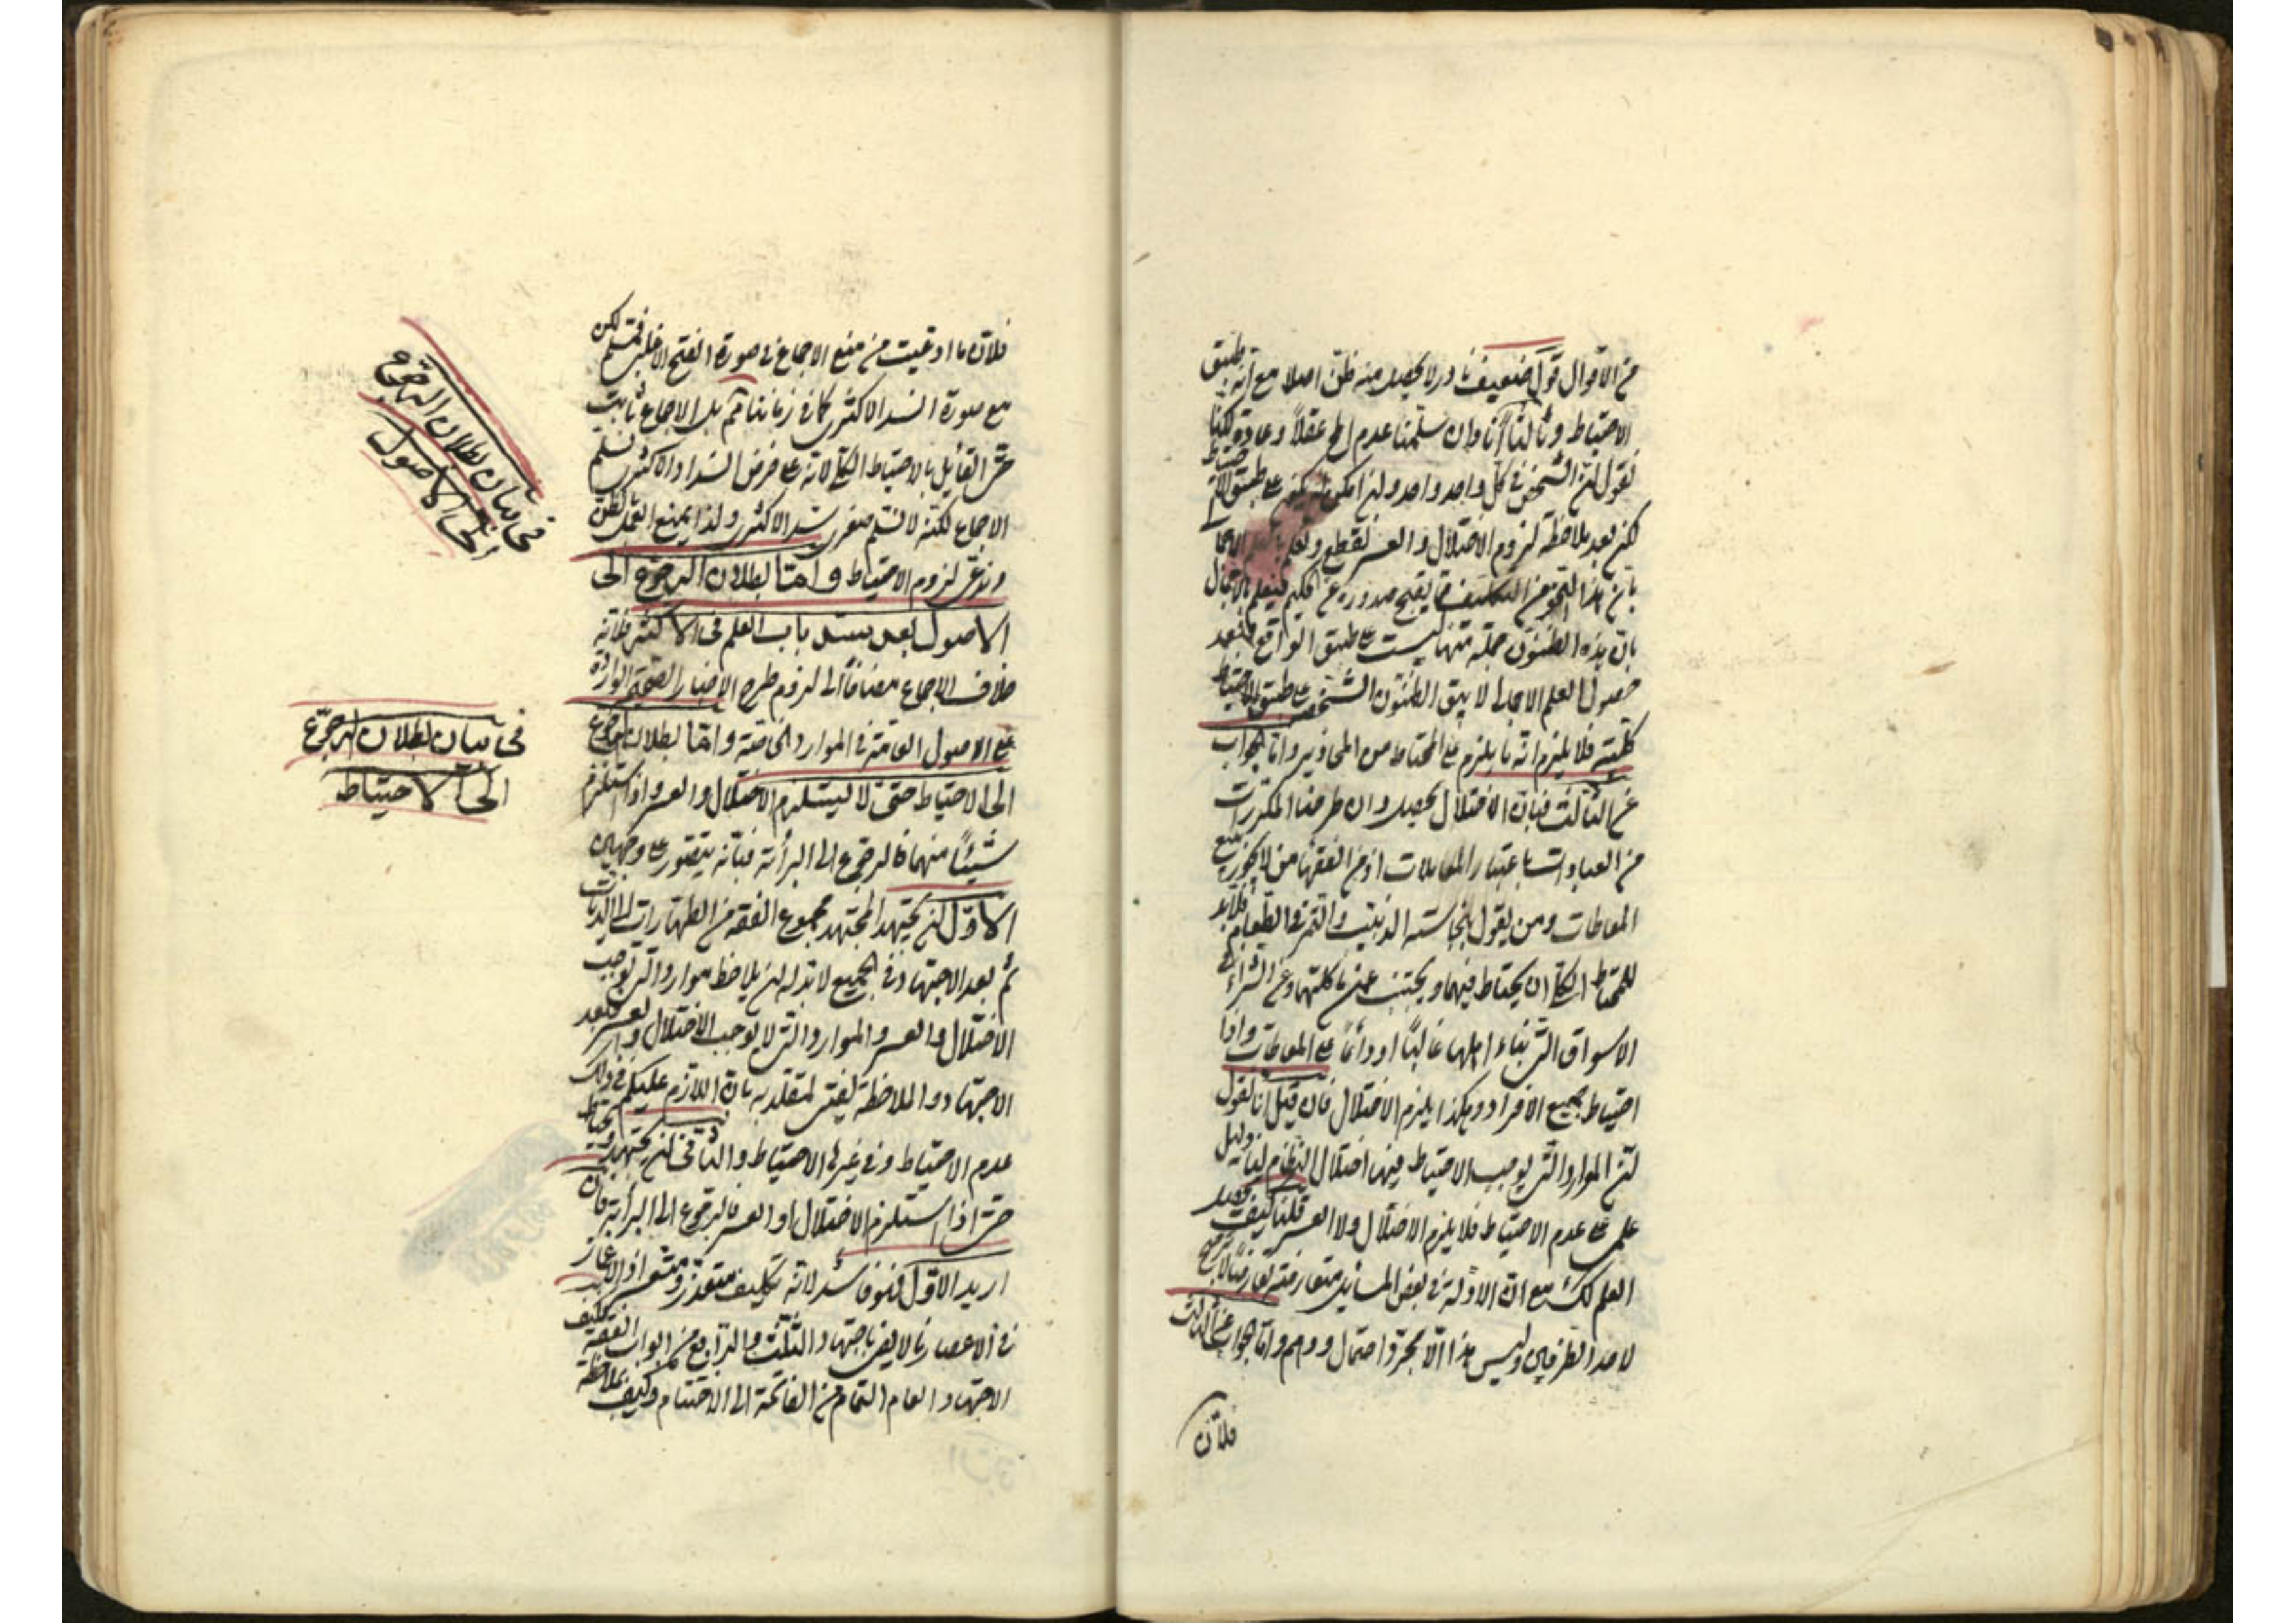 من الأقوال قول ضعيف نادر لا يحصل منه ظن اصلا مع انه طبق
الاحتياط وثالثا انا وان سلمنا عدم لح عقلاً وعادة لكنا
نقول ان الشخص في كل واحد واحد وان امكن على طبق الاحتياط
لكن بعد ملاحظة لزوم الاختلال والعسر نقطع
بان هذا النحو من التكليف مما يقبح صدوره عن الحكيم فيعلم بالاجمال
بان هذه الظنون جملة منها ليست على طبق الواقع فبعد
حصول العلم الاجمالي لا يبقى الظنون الشخصي على طبق الاحتياط
كلية فلا يلزم انه ما يلزم على المحتاط من المحاذير واما الجواب
عن الثالث فبان الاختلال يحصل وان طرحنا المكررات
من العبادات باعتبار المعاملات اذ من الفقهاء من لا يجوز بيع
المعاطات ومن يقول بنجاسة الزبيب والتمر في الطعام فلا بد
للمحتاط الكلي ان يحتاط فيهما ويجتنب عن ماكلتهما وعن الشراء في
الاسواق التي بناء اهلها غالبًا او دائمًا على المعاطات واذا
احتياط جميع الافراد وهكذا يلزم الاختلال فان قيل انا نقول
لان الموارد التي يوجب الاحتياط فيها اختلال النظام لنا دليل
علمي على عدم الاحتياط فلا يلزم الاختلال ولا العسر قلنا كيف
العلم لك مع ان الادلة في بعض المسائل متعارضة تعارضًا لا ترجيح
لاحد الطرفين وليس هذا الا مجرد احتمال ووهم واما الجواب عن الثالث
فلان
فلان ما ادعيت من منع الاجماع في صورة الفتح الاغلبي فمسلم لكن
مع صورة السد الاكثري كما في زماننا ثم بل الاجماع ثابت
حتى القائل بالاحتياط الكلي لانه على فرض انسداد الاكثري نسلم
الاجماع لكنه لا نسلم صغرى سد الاكثري ولذا يمنع العمل بالظن
ويدعى لزوم الاحتياط واما بطلان الرجوع الى
الاصول بعد سد باب العلم في الاكثر فلانه
خلاف الاجماع مضافًا الى لزوم طرح الاخبار الصحيحة الواردة
على الاصول العامة في الموارد الخاصة واما بطلان الرجوع
الى الاحتياط حتى لا يستلزم الاختلال والعسر واذا استلزم
شيئًا منهما فالرجوع الى البرائة فبانه يتصور على وجهين
الاول ان يجتهد المجتهد مجموع الفقه من الطهارات الى الديات
ثم بعد الاجتهاد في الجميع لا بد له ان يلاحظ موارد التي توجب
الاختلال والعسر والموارد التي لا توجب الاختلال والعسر فبعد
الاجتهاد والملاحظة يفتي لمقلديه بان اللازم عليكم في ذلك
عدم الاحتياط وفي غيره الاحتياط والثاني ان يجتهد ويحتاط
حتى اذا استلزم الاختلال او العسر فالرجوع الى البرائة فان
اريد الاول فهو فاسد لانه تكليف متعذر ومتعسر اذ الاعمار
في الاعصار ما لا يفي باجتهاد الثلث والرابع من ابواب الفقه فكيف
الاجتهاد العام التمام من الفاتحة الى الاختتام وكيف بملاحظة
في بيان بطلان الرجوع
الى الاصول
في بيان بطلان الرجوع
الى الاحتياط